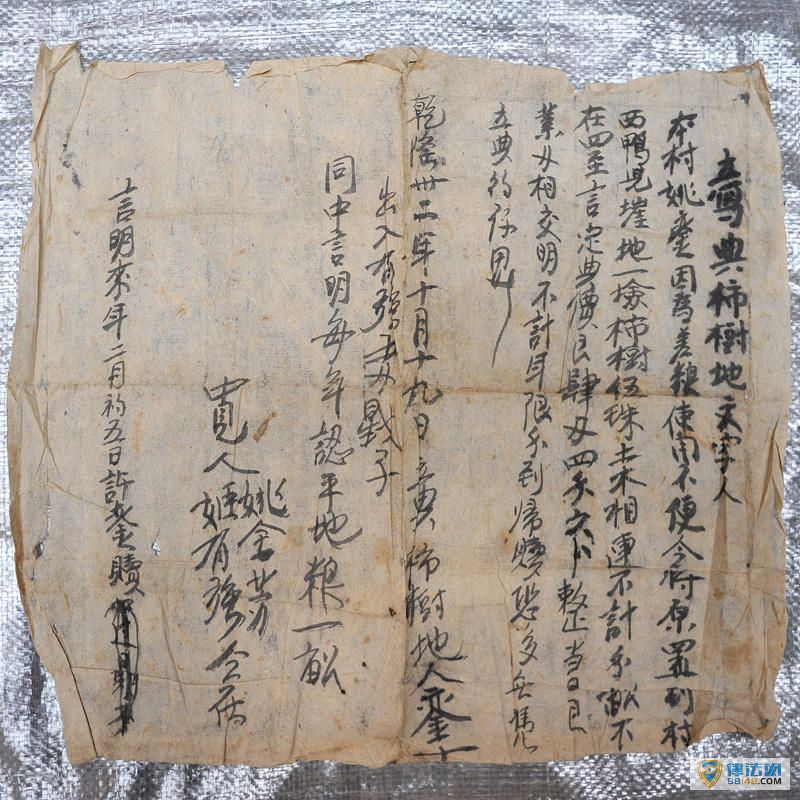 立寫典柿樹地文字人
本村姚奎因為差粮使用不便今將原置到村
西鴨兒 地一 柿樹伍珠土木相連不計分畝不
在四至言定典價良肆 四 整当日良
業 相交明不計年限分到帰贖恐後無憑
立典約存用
乾隆卅二年十月十九日立典柿樹地人奎十
出入有強
同中言明每年認平地粮一畝
中見人姚 姬有強仝在
言明來年二月初五日許奎贖
律法网
98148.com